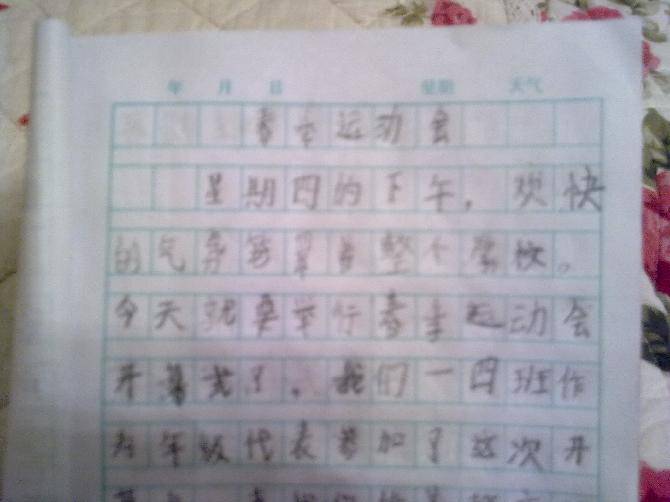 年 月 日 星期 天气
春季运动会
星期四的下午，欢快
的气氛笼罩着整个学校。
今天就要举行春季运动会
开幕式了。我们一四班作
为年级代表参加了这次开